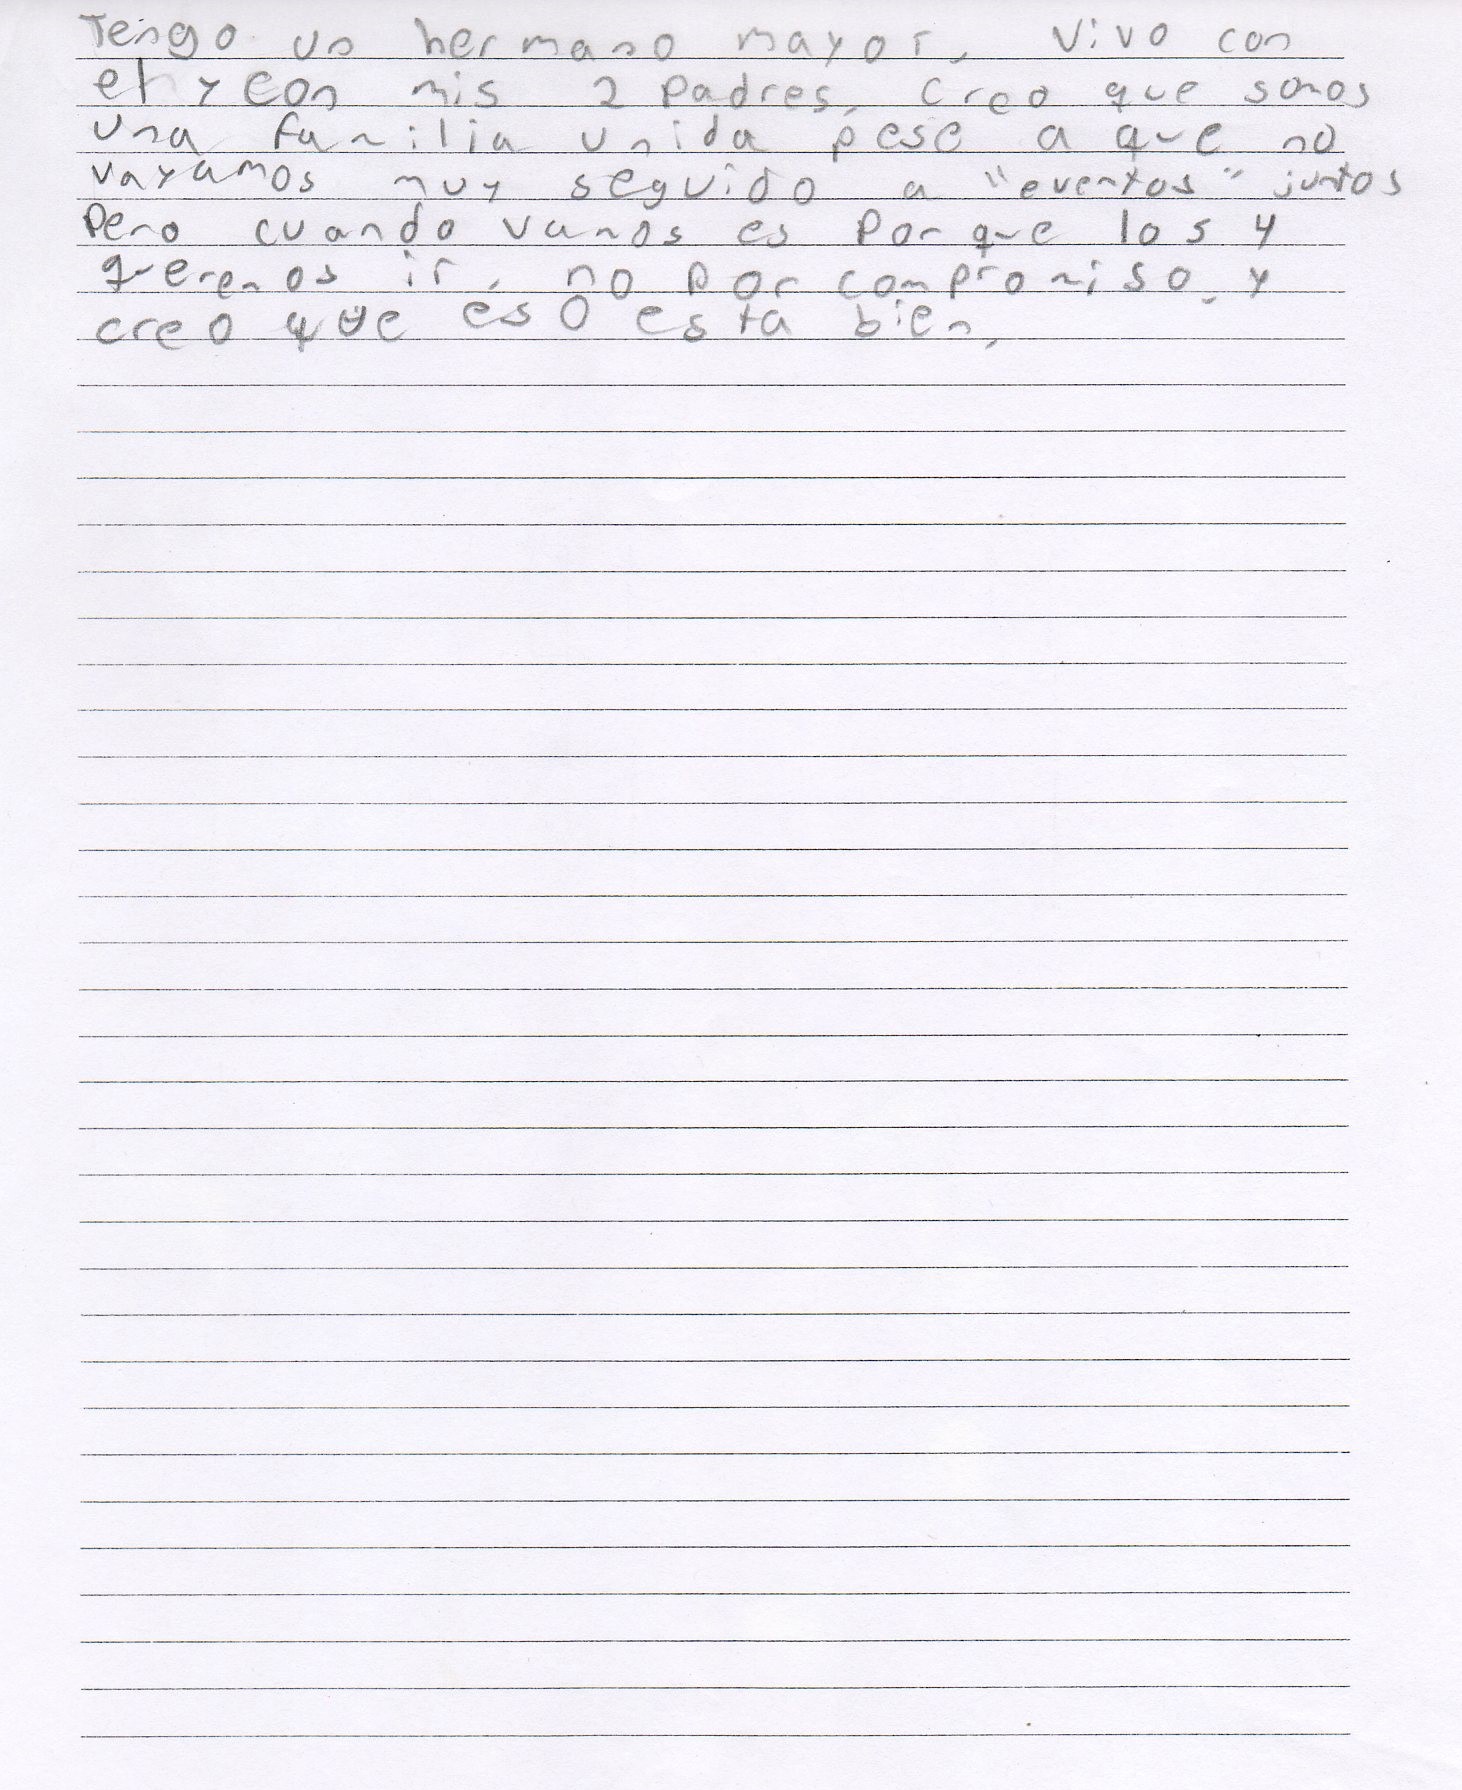 Tengo un hermano mayor, vivo con
el y con mis 2 padres, creo que somos
una familia unida pese a que no
vayamos muy seguido a "eventos" juntos
Pero cuando vamos es porque los 4
queremos ir, no por compromiso, y
creo que eso esta bien,